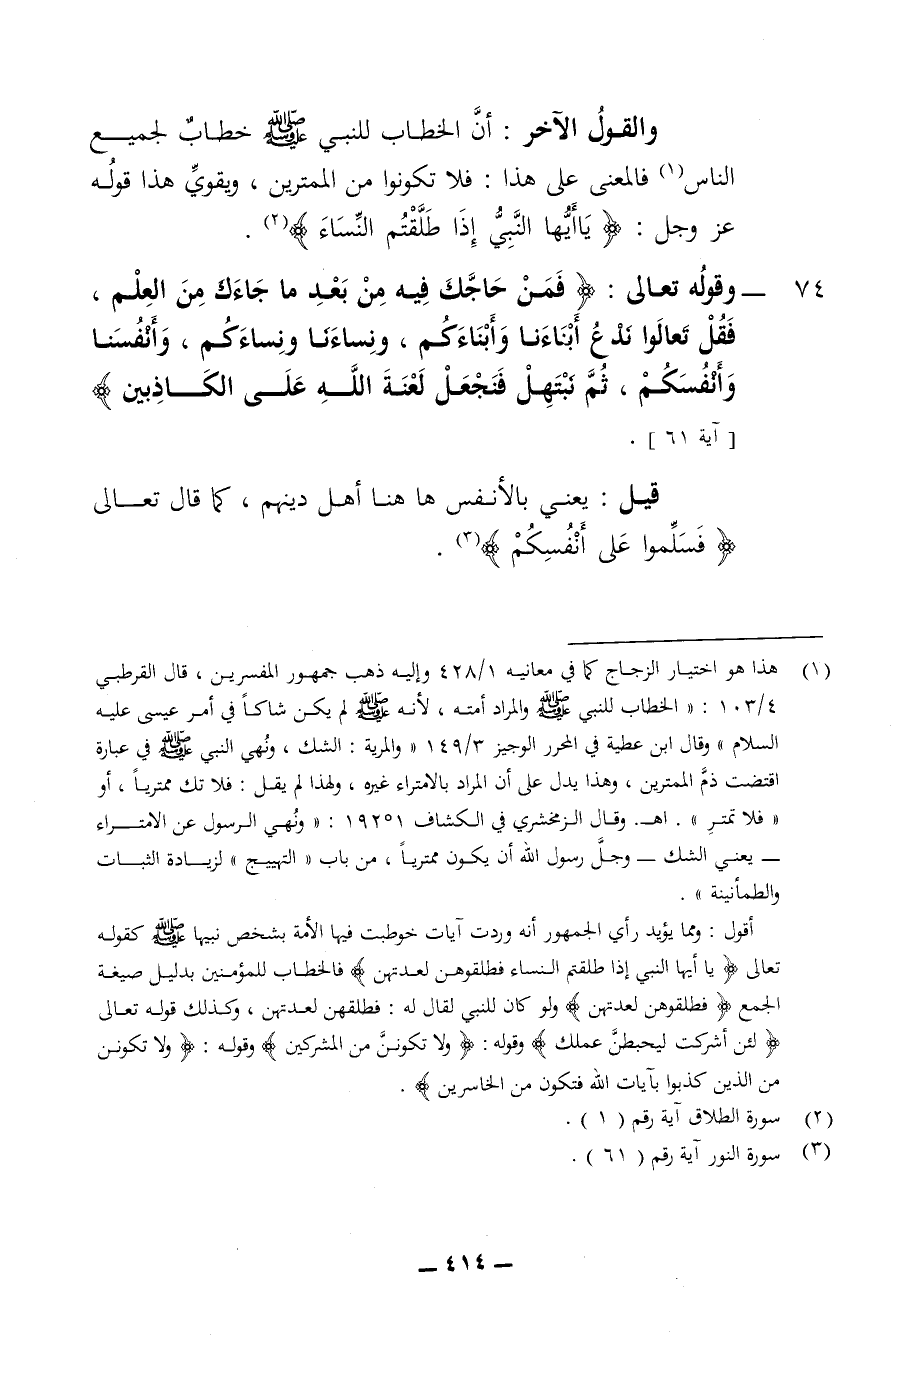 والقولُ الآخر : أنَّ الخطاب للنبي ﷺ خطابٌ لجميع
الناس(١) فالمعنى على هذا : فلا تكونوا من الممترين ، ويقويِّ هذا قولُه
عز وجل : ﴿ يَاأَيُّها النَّبِيُّ إِذَا طَلَّقْتُم النِّسَاءَ ﴾(٢) .
٧٤ ــ وقولُه تعالى : ﴿ فَمَنْ حَاجَّكَ فِيه مِنْ بَعْدِ ما جَاءَكَ مِنَ العِلْم ،
فَقُلْ تَعالَوا نَدْعُ أَبْنَاءَنا وَأَبْنَاءَكُم ، ونِساءَنَا ونِساءَكُم ، وَأَنْفُسَنا
وَأَنْفُسَكُمْ ، ثُمَّ نَبْتَهِلْ فَنَجْعَلْ لَعْنَةَ اللَّهِ عَلَى الكَاذِبين ﴾
[ آية ٦١ ] .
قيل : يعني بالأنفس ها هنا أهل دينهم ، كما قال تعالى
﴿ فَسَلِّموا عَلى أَنْفُسِكُمْ ﴾(٣) .
(١) هذا هو اختيار الزجاج كما في معانيه ٤٢٨/١ وإليه ذهب جمهور المفسرين ، قال القرطبي
١٠٣/٤ : « الخطاب للنبي ﷺ والمراد أمته ، لأنه ﷺ لم يكن شاكاً في أمر عيسى عليه
السلام » وقال ابن عطية في المحرر الوجيز ١٤٩/٣ « والمرية : الشك ، ونُهي النبي ﷺ في عبارة
اقتضت ذمَّ الممترين ، وهذا يدل على أن المراد بالامتراء غيره ، ولهذا لم يقل : فلا تك ممترياً ، أو
« فلا تمترِ » . اهـ. وقال الزمخشري في الكشاف ١٩٢٥١ : « ونُهي الرسول عن الامتراء
ــ يعني الشك ــ وجلَّ رسول الله أن يكون ممترياً ، من باب « التهييج » لزيادة الثبات
والطمأنينة » .
أقول : ومما يؤيد رأي الجمهور أنه وردت آيات خوطبت فيها الأمة بشخص نبيها ﷺ كقوله
تعالى ﴿ يا أيها النبي إذا طلقتم النساء فطلقوهن لعدتهن ﴾ فالخطاب للمؤمنين بدليل صيغة
الجمع ﴿ فطلقوهن لعدتهن ﴾ ولو كان للنبي لقال له : فطلقهن لعدتهن ، وكذلك قوله تعالى
﴿ لئن أشركت ليحبطنَّ عملك ﴾ وقوله : ﴿ ولا تكوننَّ من المشركين ﴾ وقوله : ﴿ ولا تكونن
من الذين كذبوا بآيات الله فتكون من الخاسرين ﴾ .
(٢) سورة الطلاق آية رقم ( ١ ) .
(٣) سورة النور آية رقم ( ٦١ ) .
ــ ٤١٤ ــ